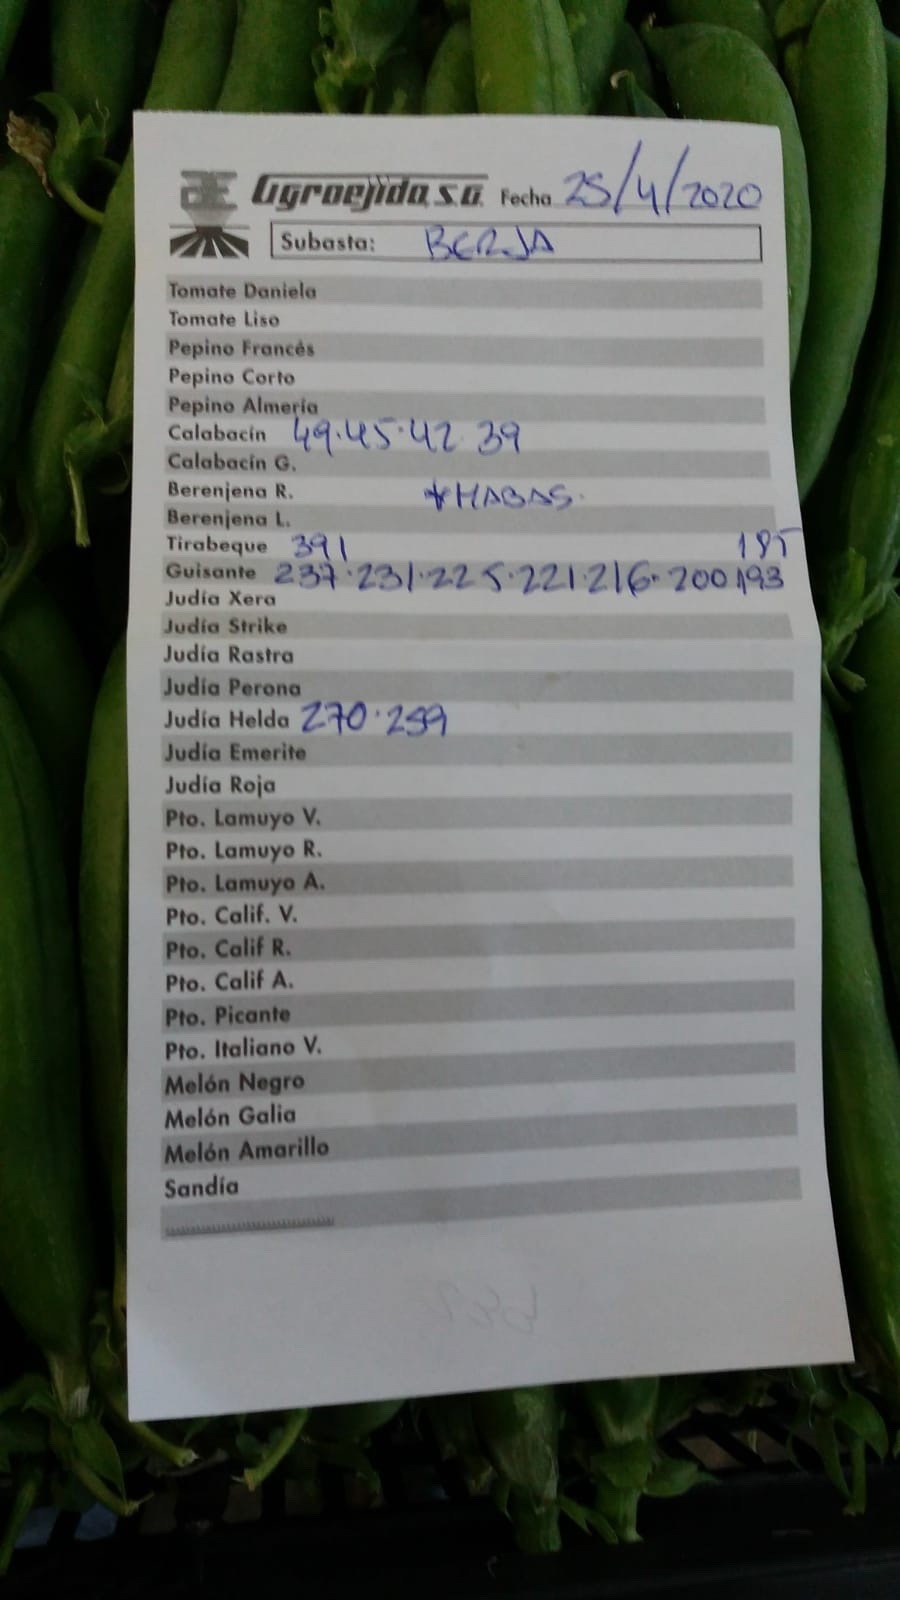 AE Agroejido, S.A. Fecha 25/4/2020
Subasta: BERJA
Tomate Daniela
Tomate Liso
Pepino Francés
Pepino Corto
Pepino Almería
Calabacín 49·45·42·39
Calabacín G.
Berenjena R. *HABAS.
Berenjena L.
Tirabeque 391 185
Guisante 237·231·225·221·216·200 193
Judía Xera
Judía Strike
Judía Rastra
Judía Perona
Judía Helda 270·259
Judía Emerite
Judía Roja
Pto. Lamuyo V.
Pto. Lamuyo R.
Pto. Lamuyo A.
Pto. Calif. V.
Pto. Calif R.
Pto. Calif A.
Pto. Picante
Pto. Italiano V.
Melón Negro
Melón Galia
Melón Amarillo
Sandía